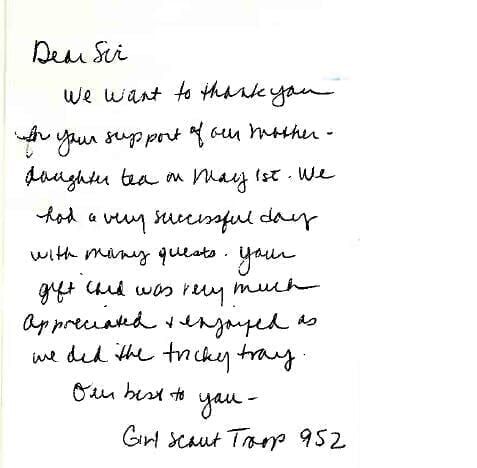 Dear Sir
We want to thank you
for your support of our mother-
daughter tea on May 1st. We
had a very successful day
with many guests. Your
gift card was very much
appreciated & enjoyed as
we did the tricky tray.
Our best to you -
Girl Scout Troop 952